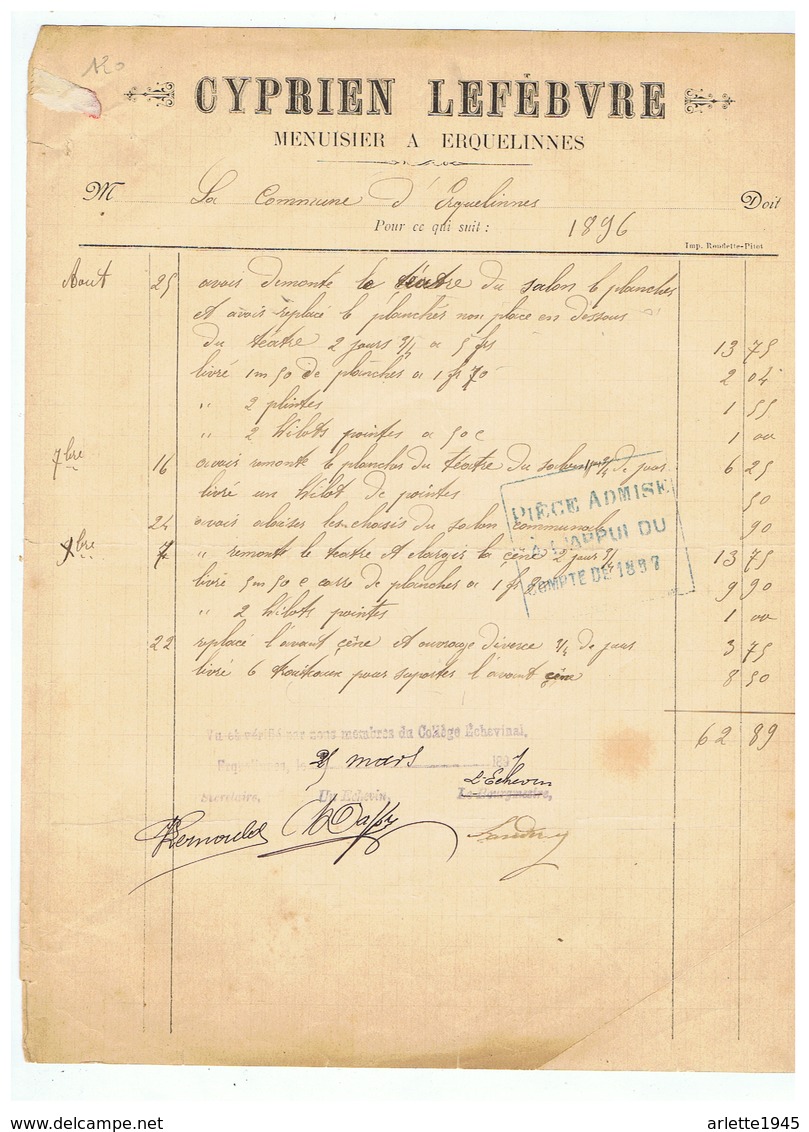 120
CYPRIEN LEFÈBVRE
MENUISIER A ERQUELINNES
M La Commune d'Erquelinnes Doit
Pour ce qui suit : 1896
Imp. Roudette-Pitot
Aout 25 avais demonté le téatre du salon 6 planches
et avais replacé 6 planches non place en dessous
du téatre 2 jours 3/4 a 5 frs 13 75
livré 1m 50 de planches a 1 fr 70 2 04
" 2 plintes 1 55
" 2 kilots pointes a 50 c 1 00
7bre 16 avais remonté le plancher du téatre du salon 1 jour 1/4 de jour 6 25
livré un kilot de pointes 50
24 avais alaiser les chasis du salon communal 90
9bre 7 " remonté le téatre et elargis la cène 2 jours 3/4 13 75
livré 5m 50 c carre de planches a 1 fr 80 9 90
" 2 kilots pointes 1 00
22 replacé l'avant cène et ouvrage diverce 3/4 de jour 3 75
livré 6 traiteaux pour suporter l'avant cène 8 50
62 89
PIÈCE ADMISE
A L'APPUI DU
COMPTE DE 1897
Vu et vérifié par nous membres du Collège Échevinal,
Erquelinnes, le 25 mars 1897
L'Echevin
Secrétaire, Un Echevin, Le Bourgmestre,
arlette1945